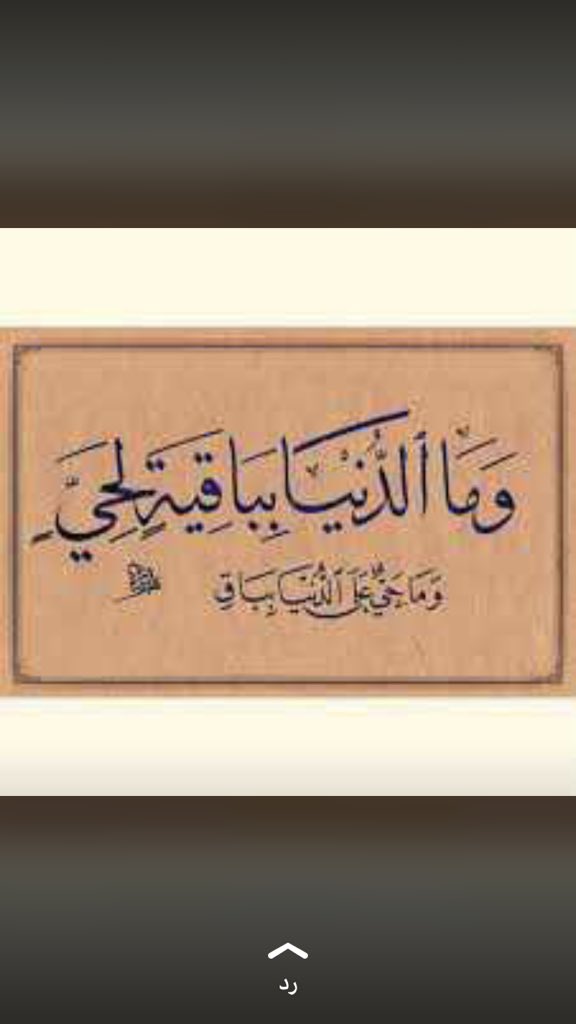 وَمَا ٱلدُّنْيَا بِبَاقِيَةٍ لِحَيٍّ
وَمَا حَيٌّ عَلَى ٱلدُّنْيَا بِبَاقِ
رد